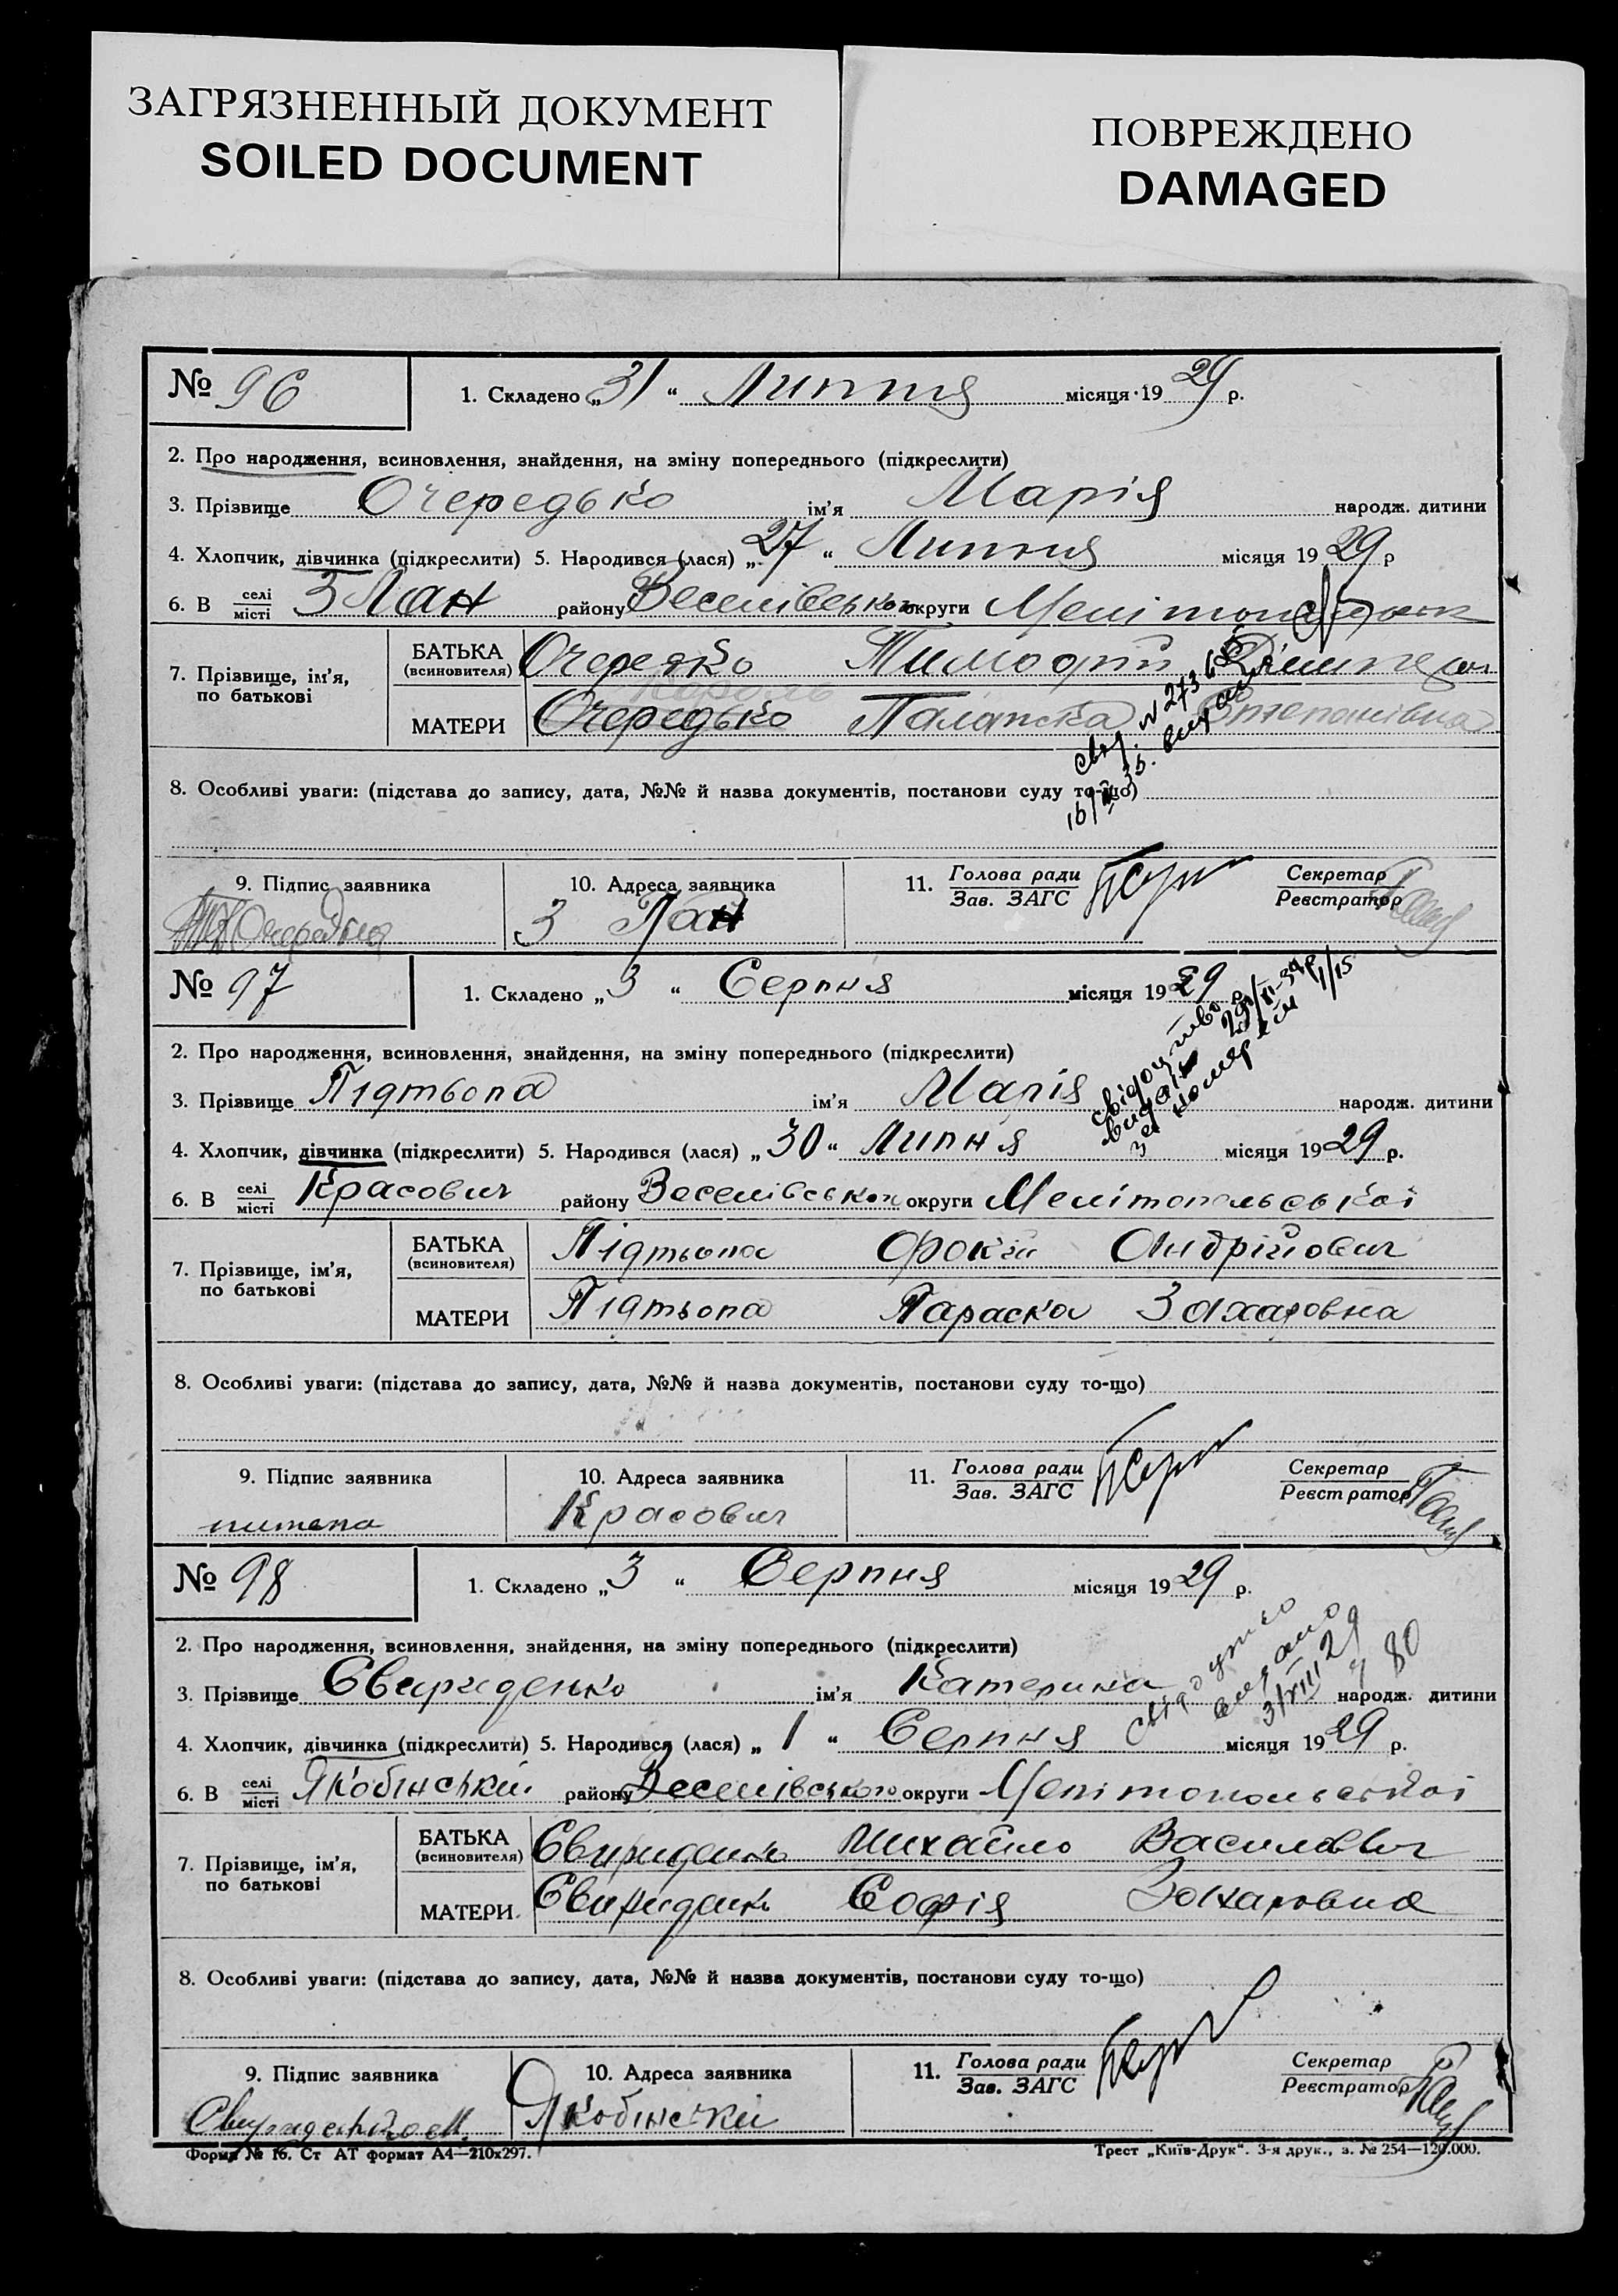 ЗАГРЯЗНЕННЫЙ ДОКУМЕНТ
SOILED DOCUMENT
ПОВРЕЖДЕНО
DAMAGED
№ 96
1. Складено „31“ Липня місяця 1929 р.
2. Про народження, всиновлення, знайдення, на зміну попереднього (підкреслити)
3. Прізвище Очередько ім’я Марія народж. дитини
4. Хлопчик, дівчинка (підкреслити) 5. Народився (лася) „27“ Липня місяця 1929 р
6. В селі/місті З Лан району Веселівського округи
7. Прізвище, ім’я, по батькові
БАТЬКА (всиновителя) Тимофій
МАТЕРИ Очередько Палашка Степанівна
8. Особливі уваги: (підстава до запису, дата, №№ й назва документів, постанови суду то-що)
9. Підпис заявника
10. Адреса заявника З Лан
11. Голова ради/Зав. ЗАГС
Секретар/Реєстратор
№ 97
1. Складено „3“ Серпня місяця 1929
2. Про народження, всиновлення, знайдення, на зміну попереднього (підкреслити)
3. Прізвище Підтьопа ім’я Марія народж. дитини
4. Хлопчик, дівчинка (підкреслити) 5. Народився (лася) „30“ Липня місяця 1929 р.
6. В селі/місті Красович району Веселівського округи Мелітопольської
7. Прізвище, ім’я, по батькові
БАТЬКА (всиновителя) Підтьопа Фокій Андрійович
МАТЕРИ Підтьопа Параска Захаровна
8. Особливі уваги: (підстава до запису, дата, №№ й назва документів, постанови суду то-що)
9. Підпис заявника
10. Адреса заявника Красович
11. Голова ради/Зав. ЗАГС
Секретар/Реєстратор
№ 98
1. Складено „3“ Серпня місяця 1929 р.
2. Про народження, всиновлення, знайдення, на зміну попереднього (підкреслити)
3. Прізвище Свириденко ім’я Катерина народж. дитини
свідоцтво
видано
3/VIII 29
№ 80
4. Хлопчик, дівчинка (підкреслити) 5. Народився (лася) „1“ Серпня місяця 1929 р.
6. В селі/місті Якобінський району Веселівського округи Мелітопольської
7. Прізвище, ім’я, по батькові
БАТЬКА (всиновителя) Свириденко Михайло Василевич
МАТЕРИ Свириденко Софія Захаровна
8. Особливі уваги: (підстава до запису, дата, №№ й назва документів, постанови суду то-що)
9. Підпис заявника
10. Адреса заявника Якобінский
11. Голова ради/Зав. ЗАГС
Секретар/Реєстратор
Форма № 16. Ст АТ формат А4—210х297.
Трест „Київ-Друк“. 3-я друк., з. № 254—120.000.